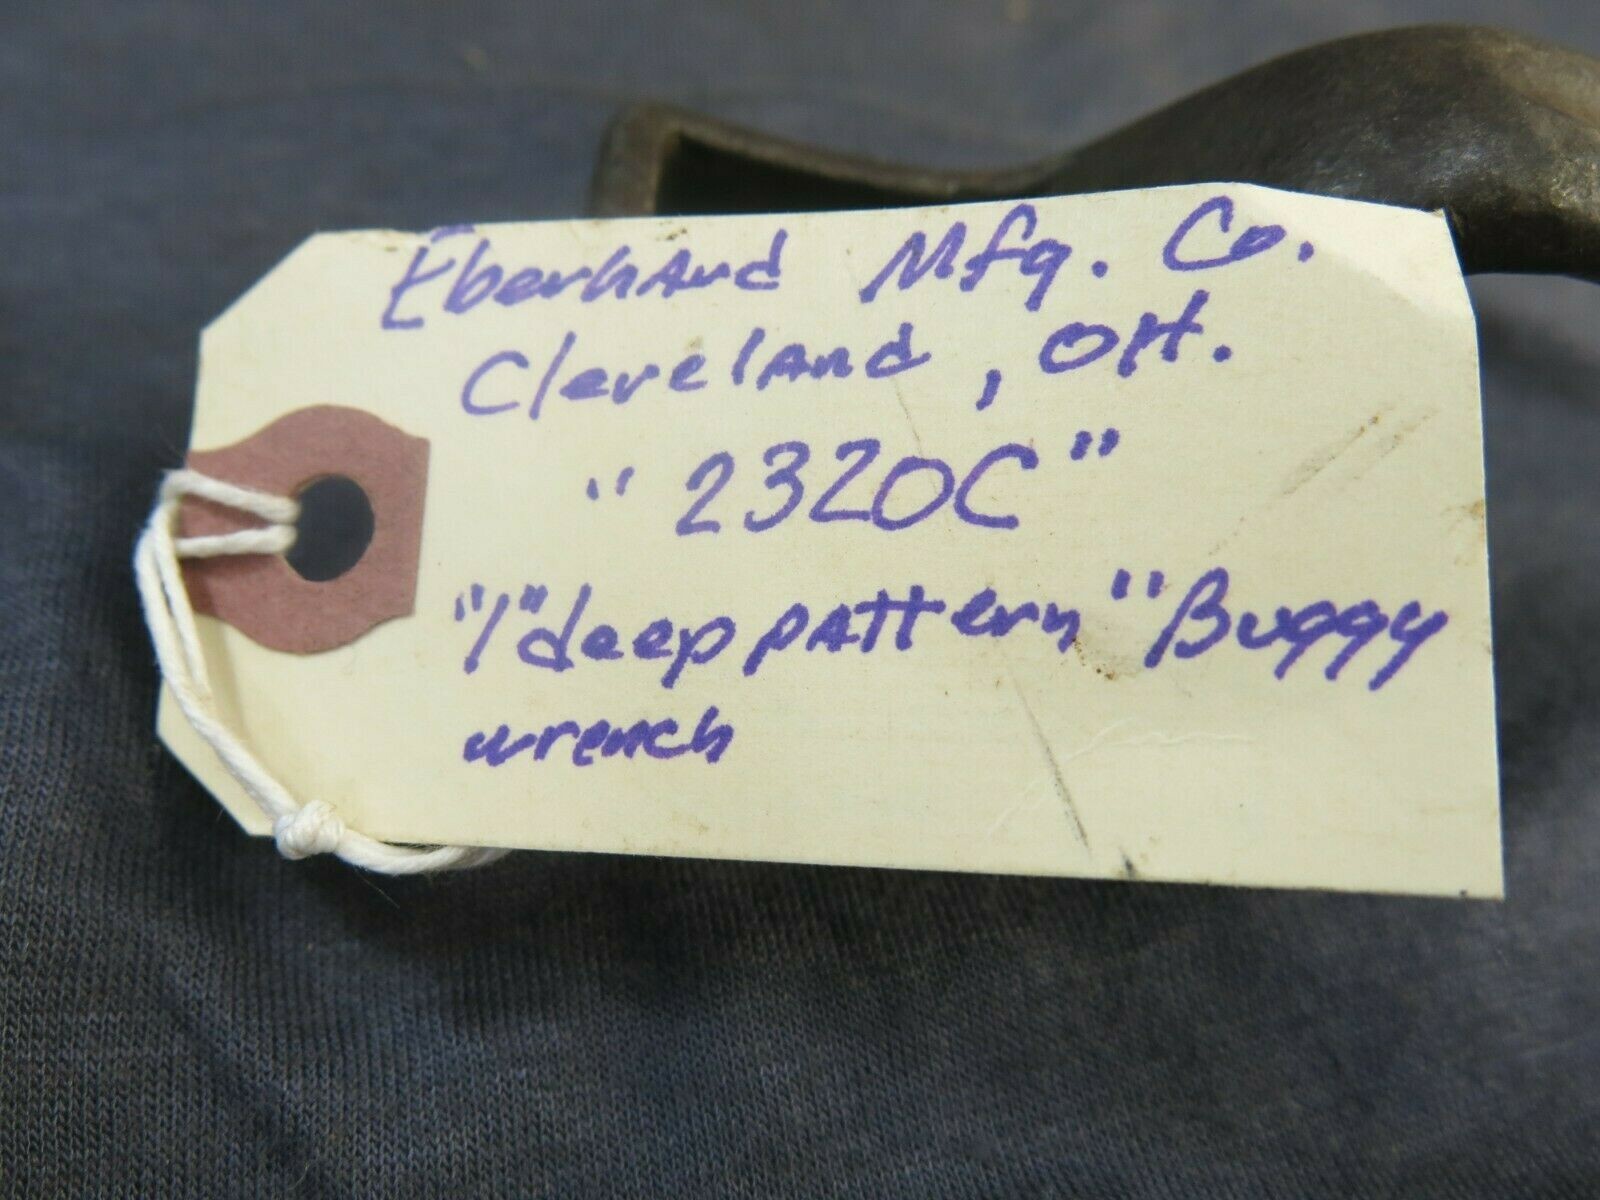 Eberhard Mfg. Co.
Cleveland, OH.
"2320C"
"1" deep pattern" Buggy
wrench